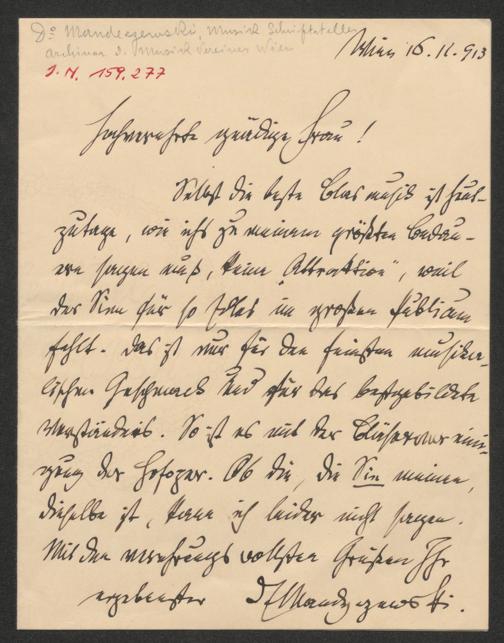 Dr. Mandyczewski, Musik Schriftsteller
Archivar d. Musik Vereines Wien
J.N. 159.277
Wien 16.11.913
Hochverehrte gnädige Frau!
Selbst die beste Blasmusik ist heut-
zutage, wie ich's zu meinem größten Bedau-
ern sagen muß, keine „Attraktion", weil
der Sinn für so edles im großen Publicum
fehlt. Das ist nur für den feinsten musika-
lischen Geschmack und für das bestgebildete
Verständnis. So ist es mit der Bläservereini-
gung der Hofoper. Ob die, die Sie meinen,
dieselbe ist, kann ich leider nicht sagen.
Mit den verehrungsvollsten Grüßen Ihr
ergebenster Mandyczewski.